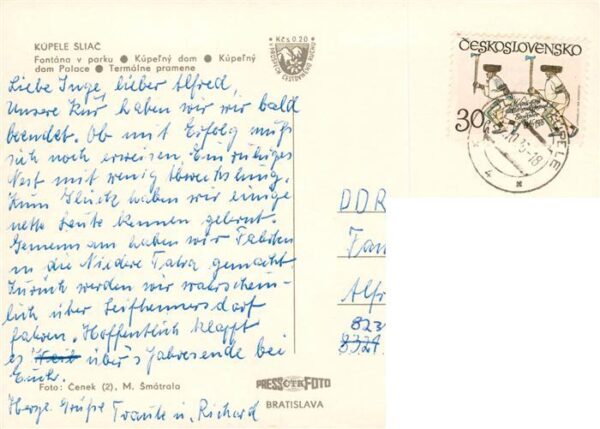 KÚPELE SLIAČ
Fontána v parku ● Kúpeľný dom ● Kúpeľný
dom Palace ● Termálne pramene
Kčs 0.20
Liebe Inge, lieber Alfred,
Unsere Kur haben wir wir bald
beendet. Ob mit Erfolg muß
sich noch erweisen. Ein ruhiges
Nest mit wenig Abwechslung.
Zum Glück haben wir einige
nette Leute kennen gelernt.
Gemeinsam haben wir Fahrten
in die Niedere Tatra gemacht.
Zurück werden wir wahrschein-
lich über Seifhennersdorf
fahren. Hoffentlich klappt
es über's Jahresende bei
Euch.
Foto: Čenek (2), M. Šmátrala
Herzl. Grüße Traute u. Richard
PRESS ČTK FOTO
BRATISLAVA
ČESKOSLOVENSKO
30
DDR
Fam
Alfr
823
8321